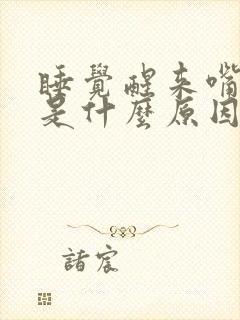 睡覺醒來嘴
是什麼原因
諸宸